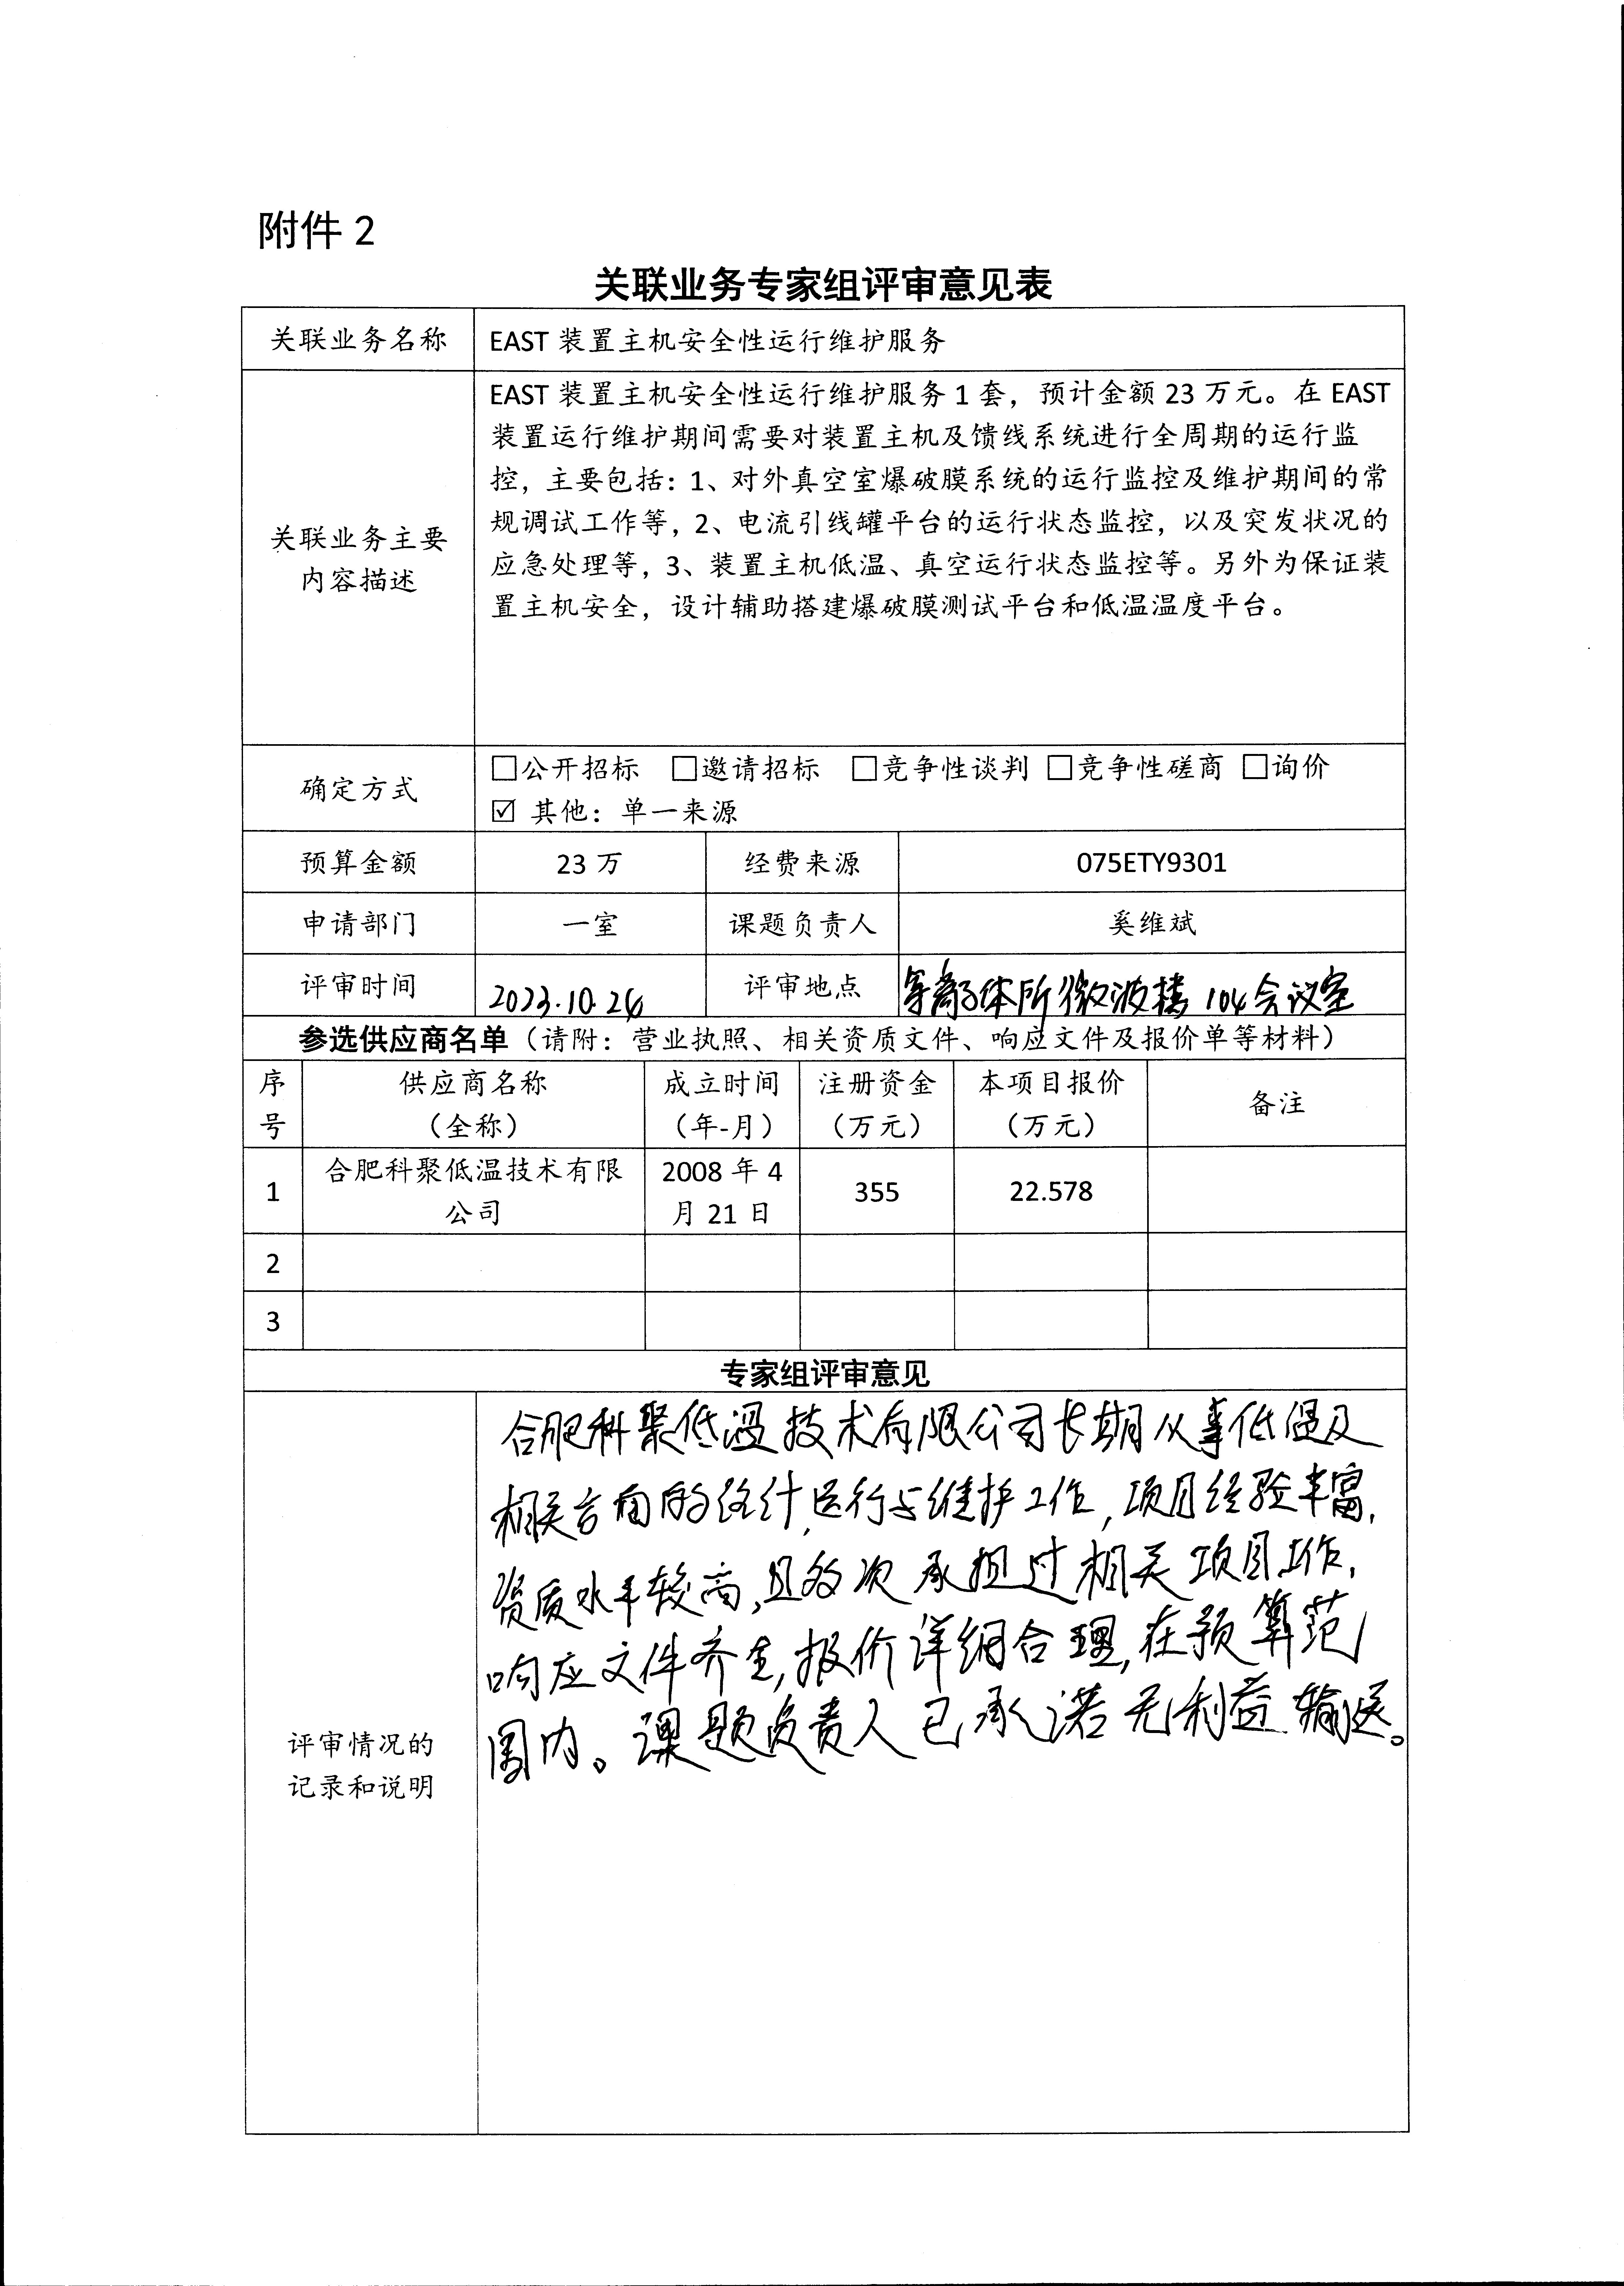 附件 2
关联业务专家组评审意见表
关联业务名称
EAST 装置主机安全性运行维护服务
关联业务主要
内容描述
EAST 装置主机安全性运行维护服务 1 套，预计金额 23 万元。在 EAST
装置运行维护期间需要对装置主机及馈线系统进行全周期的运行监
控，主要包括：1、对外真空室爆破膜系统的运行监控及维护期间的常
规调试工作等，2、电流引线罐平台的运行状态监控，以及突发状况的
应急处理等，3、装置主机低温、真空运行状态监控等。另外为保证装
置主机安全，设计辅助搭建爆破膜测试平台和低温温度平台。
确定方式
□公开招标 □邀请招标 □竞争性谈判 □竞争性磋商 □询价
☑ 其他：单一来源
预算金额 23 万 经费来源 075ETY9301
申请部门 一室 课题负责人 奚维斌
评审时间 2023.10.24 评审地点 等离子体所微波楼 104会议室
参选供应商名单（请附：营业执照、相关资质文件、响应文件及报价单等材料）
序号 供应商名称（全称） 成立时间（年-月） 注册资金（万元） 本项目报价（万元） 备注
1 合肥科聚低温技术有限公司 2008 年 4 月 21 日 355 22.578
2
3
专家组评审意见
评审情况的
记录和说明
合肥科聚低温技术有限公司长期从事低温及
相关方面的设计、运行与维护工作，项目经验丰富，
资质水平较高，且多次承担过相关项目工作，
响应文件齐全，报价详细合理，在预算范
围内。课题负责人已承诺无利益输送。